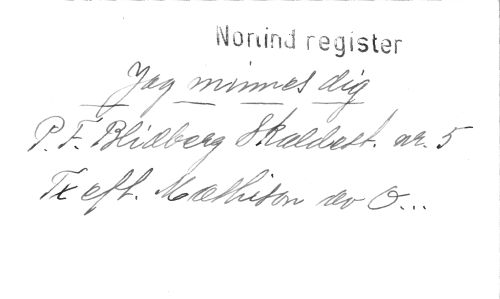 Norlind register
Jag minnes dig
P. F. Blidberg Skaldest. nr. 5
Tx eft. Mathison av O...